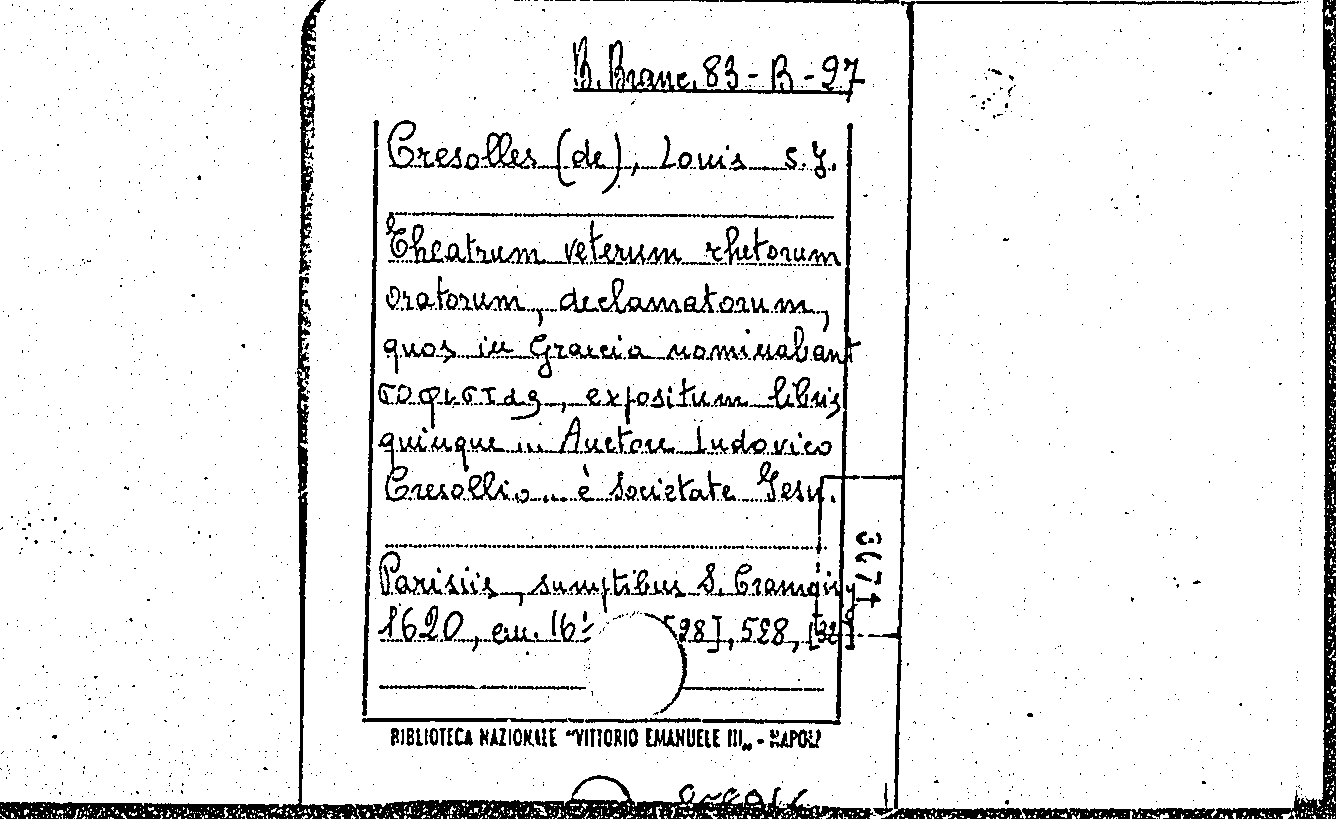 B. Branc. 83-B-27
Cresolles (de), Louis S.J.
Theatrum veterum rhetorum
oratorum, declamatorum,
quos in Graecia nominabant
σοφιστας, expositum libris
quinque ... Auctore Ludovico
Cresollio ... è Societate Jesu.
Parisiis, sumptibus S. Cramoisy
1620, cm. 16½ [28], 528, [32]
BIBLIOTECA NAZIONALE "VITTORIO EMANUELE III" - NAPOLI